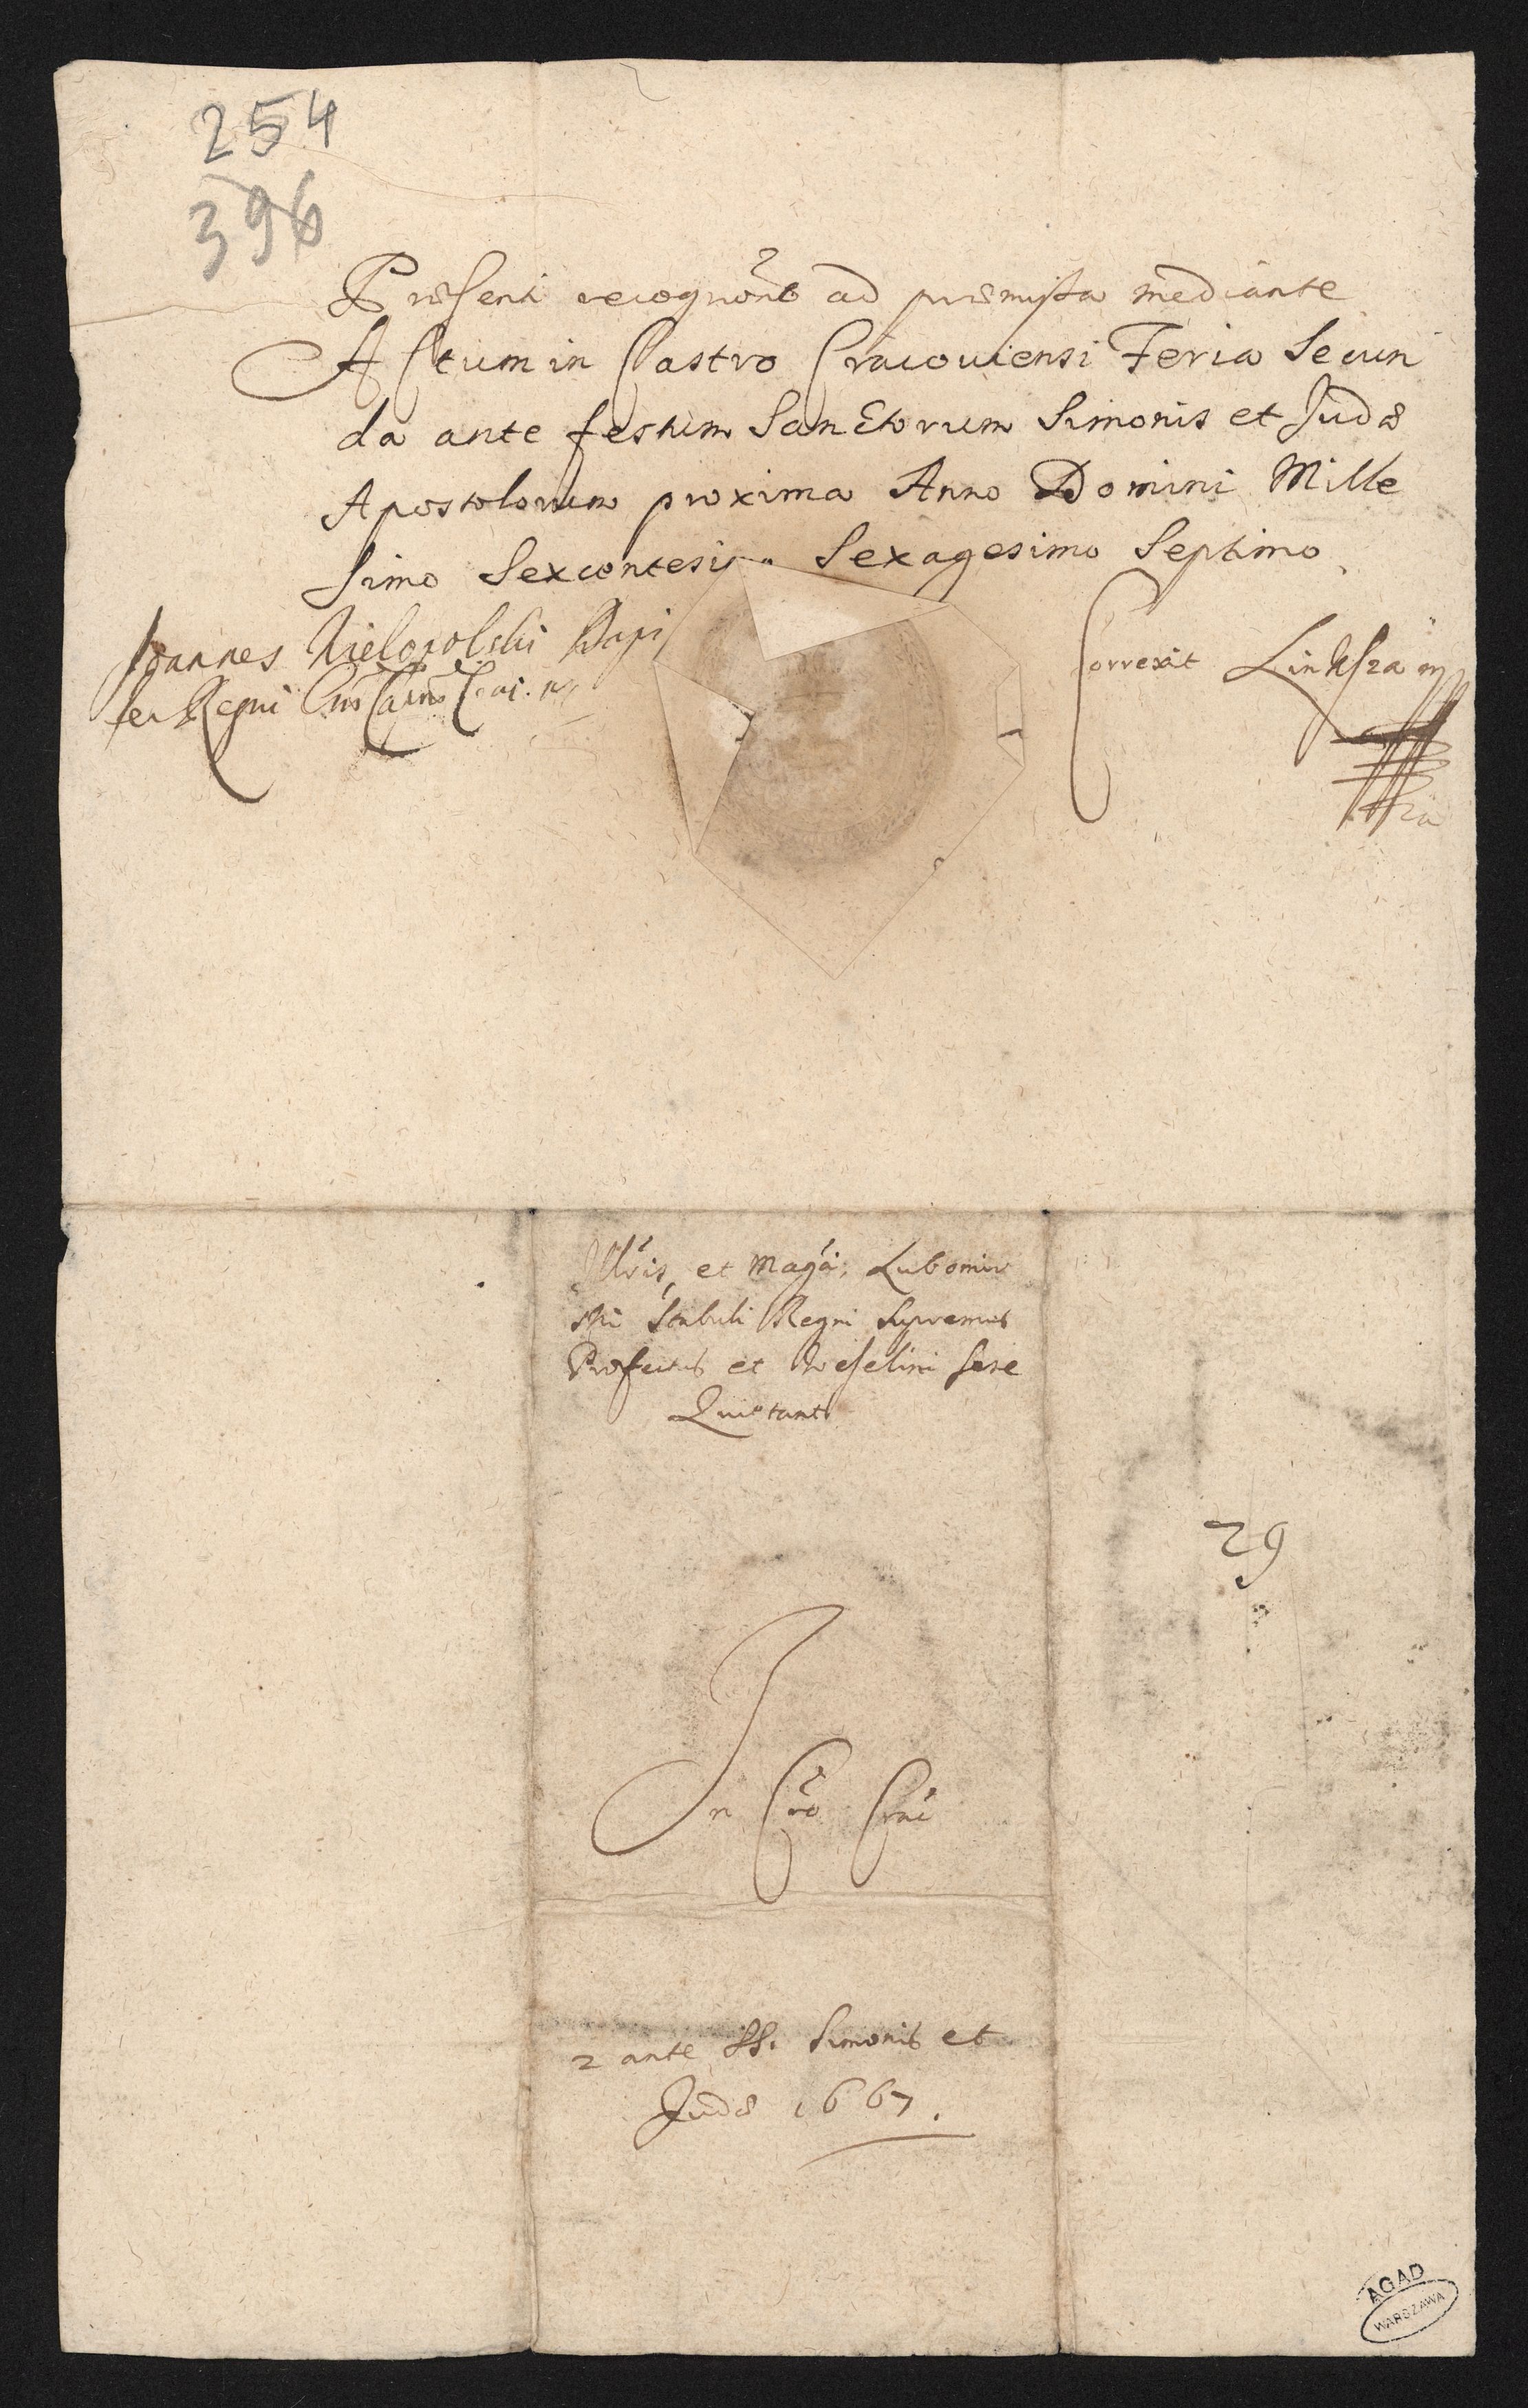 254
396
Præsenti recognõne ad præmissa mediante
Actum in Castro Cracouiensi Feria Secun
da ante festum Sanctorum Simonis et Judæ
Apostolorum proxima Anno Domini Mille
simo Sexcentesimo Sexagesimo Septimo
Joannes Wielopolski Dapi
fer Regni
Correxit
Illris et Magci. Lubomir
ski Stabuli Regni Supremus
Præfectus et Weselini sese
Quietant
29
In Cro Crac
2 ante SS. Simonis et
Judæ 1667.
AGAD
WARSZAWA